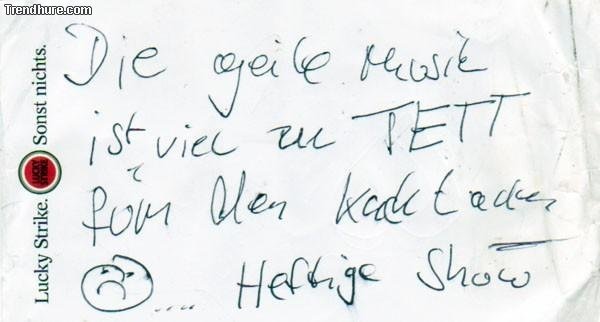 Trendhure.com
Lucky Strike. Sonst nichts.
LUCKY STRIKE
Die geile Musik
ist viel zu FETT
für den Kackladen
.... Heftige Show